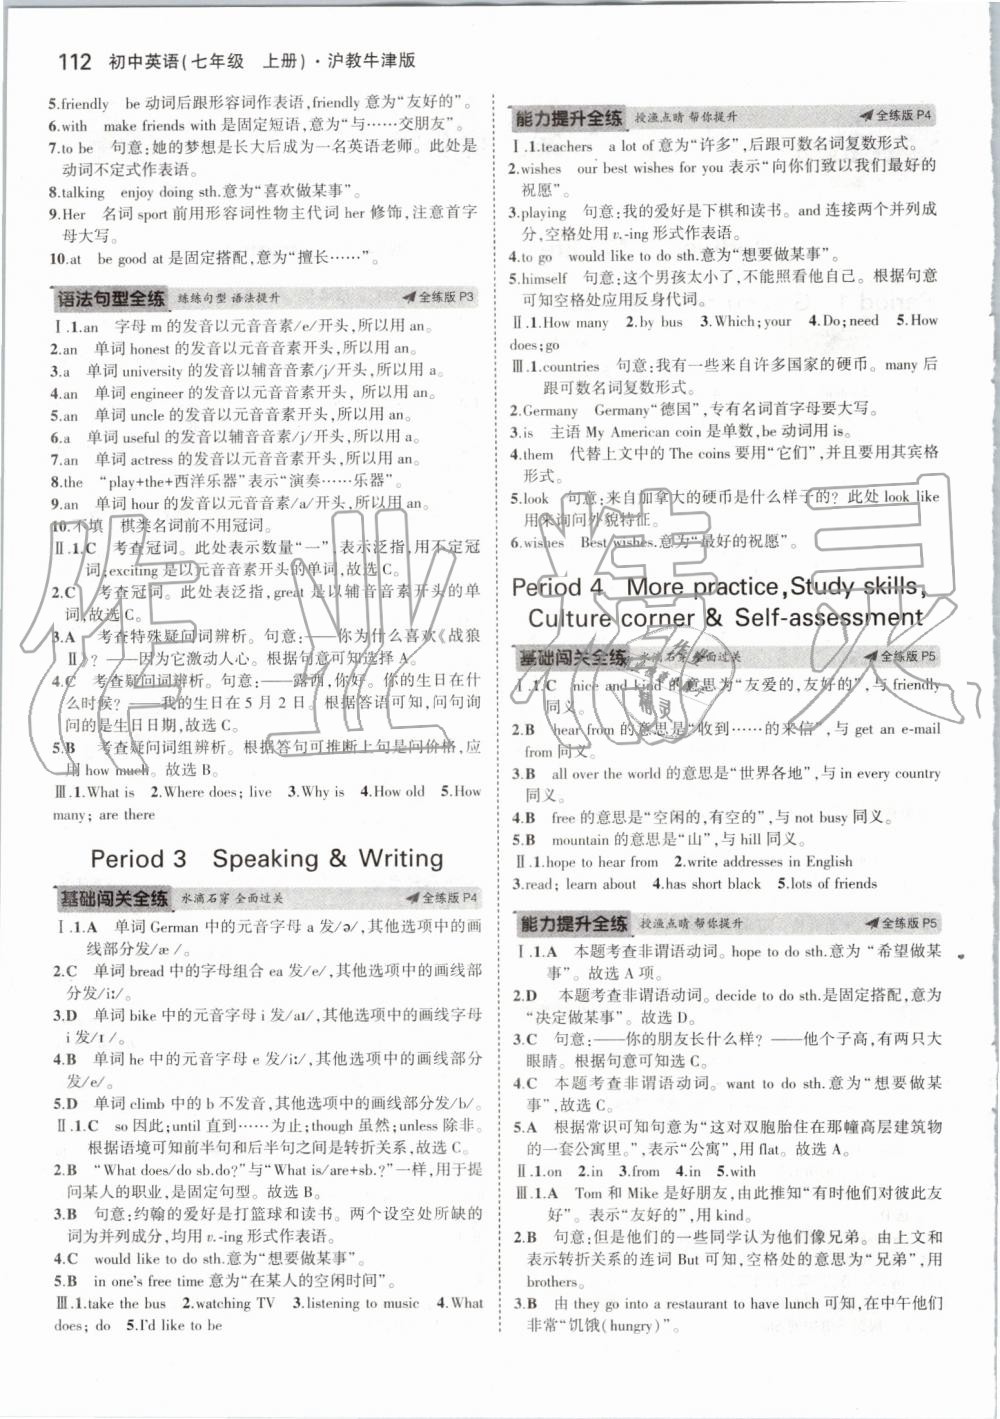 112 初中英语(七年级 上册)·沪教牛津版
5.friendly be 动词后跟形容词作表语,friendly 意为“友好的”。
6.with make friends with 是固定短语,意为“与……交朋友”。
7.to be 句意:她的梦想是长大后成为一名英语老师。此处是
动词不定式作表语。
8.talking enjoy doing sth.意为“喜欢做某事”。
9.Her 名词 sport 前用形容词性物主代词 her 修饰,注意首字
母大写。
10.at be good at 是固定搭配,意为“擅长……”。
语法句型全练 练练句型 语法提升 全练版 P3
Ⅰ.1.an 字母 m 的发音以元音音素/e/开头,所以用 an。
2.an 单词 honest 的发音以元音音素开头,所以用 an。
3.a 单词 university 的发音以辅音音素/j/开头,所以用 a。
4.an 单词 engineer 的发音以元音音素开头,所以用 an。
5.an 单词 uncle 的发音以元音音素开头,所以用 an。
6.a 单词 useful 的发音以辅音音素/j/开头,所以用 a。
7.an 单词 actress 的发音以元音音素开头,所以用 an。
8.the “play+the+西洋乐器”表示“演奏……乐器”。
9.an 单词 hour 的发音以元音音素/a/开头,所以用 an。
10.不填 棋类名词前不用冠词。
Ⅱ.1.C 考查冠词。此处表示数量“一”,表示泛指,用不定冠
词,exciting 是以元音音素开头的单词,故选 C。
2.C 考查冠词。此处表泛指,great 是以辅音音素开头的单
词,故选 C。
3.A 考查特殊疑问词辨析。句意:——你为什么喜欢《战狼
Ⅱ》? ——因为它激动人心。根据句意可知选择 A。
4.C 考查疑问词辨析。句意:——露西,你好。你的生日在什
么时候? ——我的生日在 5 月 2 日。根据答语可知,问句询
问的是生日日期,故选 C。
5.B 考查疑问词组辨析。根据答句可推断上句是问价格,应
用 how much。故选 B。
Ⅲ.1.What is 2.Where does; live 3.Why is 4.How old 5.How
many; are there
Period 3 Speaking & Writing
基础闯关全练 水滴石穿 全面过关 全练版 P4
Ⅰ.1.A 单词 German 中的元音字母 a 发/ə/,其他选项中的画
线部分发/æ /。
2.C 单词 bread 中的字母组合 ea 发/e/,其他选项中的画线部
分发/iː/。
3.D 单词 bike 中的元音字母 i 发/aɪ/,其他选项中的画线字母
i 发/ɪ /。
4.B 单词 he 中的元音字母 e 发/iː/,其他选项中的画线部分
发/e/。
5.D 单词 climb 中的 b 不发音,其他选项中的画线部分发/b/。
Ⅱ.1.C so 因此;until 直到……为止;though 虽然;unless 除非。
根据语境可知前半句和后半句之间是转折关系,故选 C。
2.B “What does/do sb.do?”与“What is/are+sb.?”一样,用于提
问某人的职业,是固定句型。故选 B。
3.B 句意:约翰的爱好是打篮球和读书。两个设空处所缺的
词为并列成分,均用 v.-ing 形式作表语。
4.C would like to do sth.意为“想要做某事”。
5.B in one's free time 意为“在某人的空闲时间”。
Ⅲ.1.take the bus 2.watching TV 3.listening to music 4.What
does; do 5.I'd like to be
能力提升全练 授渔点睛 帮你提升 全练版 P4
Ⅰ.1.teachers a lot of 意为“许多”,后跟可数名词复数形式。
2.wishes our best wishes for you 表示“向你们致以我们最好的
祝愿”。
3.playing 句意:我的爱好是下棋和读书。and 连接两个并列成
分,空格处用 v.-ing 形式作表语。
4.to go would like to do sth.意为“想要做某事”。
5.himself 句意:这个男孩太小了,不能照看他自己。根据句意
可知空格处应用反身代词。
Ⅱ.1.How many 2.by bus 3.Which;your 4.Do;need 5.How
does;go
Ⅲ.1.countries 句意:我有一些来自许多国家的硬币。many 后
跟可数名词复数形式。
2.Germany Germany“德国”,专有名词首字母要大写。
3.is 主语 My American coin 是单数,be 动词用 is。
4.them 代替上文中的 The coins 要用“它们”,并且用其宾格
形式。
5.look 句意:来自加拿大的硬币是什么样子的? 此处 look like
用来询问外貌特征。
6.wishes Best wishes.意为“最好的祝愿”。
Period 4 More practice,Study skills,
Culture corner & Self-assessment
基础闯关全练 水滴石穿 全面过关 全练版 P5
Ⅰ.1.C nice and kind 的意思为“友爱的,友好的”,与 friendly
同义。
2.B hear from 的意思是“收到……的来信”,与 get an e-mail
from 同义。
3.B all over the world 的意思是“世界各地”,与 in every country
同义。
4.B free 的意思是“空闲的,有空的”,与 not busy 同义。
5.B mountain 的意思是“山”,与 hill 同义。
Ⅱ.1.hope to hear from 2.write addresses in English
3.read; learn about 4.has short black 5.lots of friends
能力提升全练 授渔点睛 帮你提升 全练版 P5
Ⅰ.1.A 本题考查非谓语动词。hope to do sth.意为“希望做某
事”。故选 A 项。
2.D 本题考查非谓语动词。decide to do sth.是固定搭配,意为
“决定做某事”。故选 D。
3.C 句意:——你的朋友长什么样? ——他个子高,有两只大
眼睛。根据句意可知选 C。
4.C 本题考查非谓语动词。want to do sth.意为“想要做某
事”,故选 C。
5.A 根据常识可知句意为“这对双胞胎住在那幢高层建筑物
的一套公寓里。”,表示“公寓”,用 flat。故选 A。
Ⅱ.1.on 2.in 3.from 4.in 5.with
Ⅲ.1.A Tom 和 Mike 是好朋友,由此推知“有时他们对彼此友
好”。表示“友好的”,用 kind。
2.B 句意:但是他们的一些同学认为他们像兄弟。由上文和
表示转折关系的连词 But 可知,空格处的意思为“兄弟”,用
brothers。
3.B 由 they go into a restaurant to have lunch 可知,在中午他们
非常“饥饿(hungry)”。
作业精灵